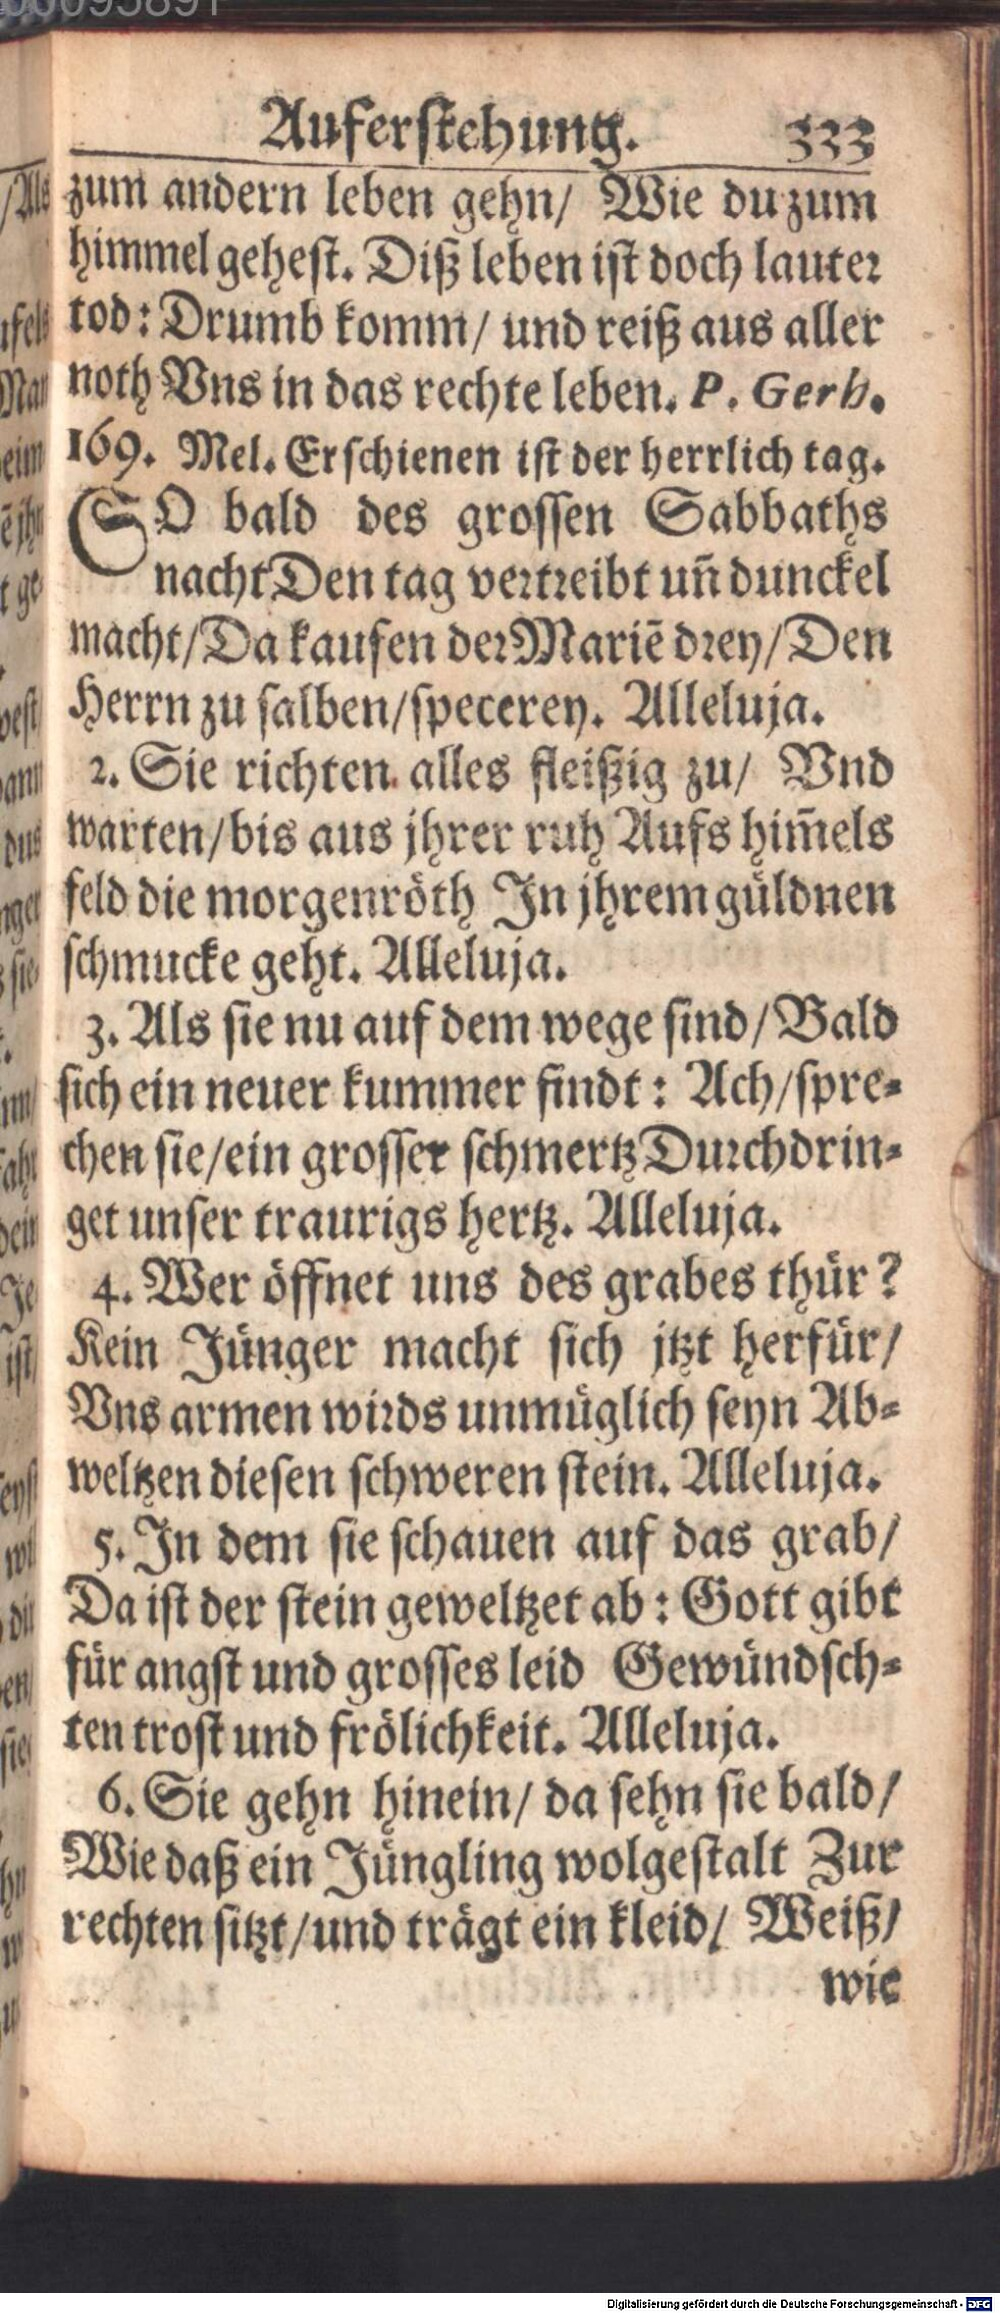 Auferstehung. 333
zum andern leben gehn/ Wie du zum
himmel gehest. Diß leben ist doch lauter
tod: Drumb komm/ und reiß aus aller
noth Vns in das rechte leben. P. Gerh.
169. Mel. Erschienen ist der herrlich tag.
SO bald des grossen Sabbaths
nacht Den tag vertreibt un̄ dunckel
macht/ Da kaufen der Mariē drey/ Den
Herrn zu salben/ specerey. Alleluja.
2. Sie richten alles fleißig zu/ Vnd
warten/ bis aus jhrer ruh Aufs him̄els
feld die morgenröth In jhrem güldnen
schmucke geht. Alleluja.
3. Als sie nu auf dem wege sind/ Bald
sich ein neuer kummer findt: Ach/ spre-
chen sie/ ein grosser schmertz Durchdrin-
get unser traurigs hertz. Alleluja.
4. Wer öffnet uns des grabes thür?
Kein Jünger macht sich jtzt herfür/
Vns armen wirds unmüglich seyn Ab-
weltzen diesen schweren stein. Alleluja.
5. In dem sie schauen auf das grab/
Da ist der stein geweltzet ab: Gott gibt
für angst und grosses leid Gewündsch-
ten trost und frölichkeit. Alleluja.
6. Sie gehn hinein/ da sehn sie bald/
Wie daß ein Jüngling wolgestalt Zur
rechten sitzt/ und trägt ein kleid/ Weiß/
wie
Digitalisierung gefördert durch die Deutsche Forschungsgemeinschaft - DFG